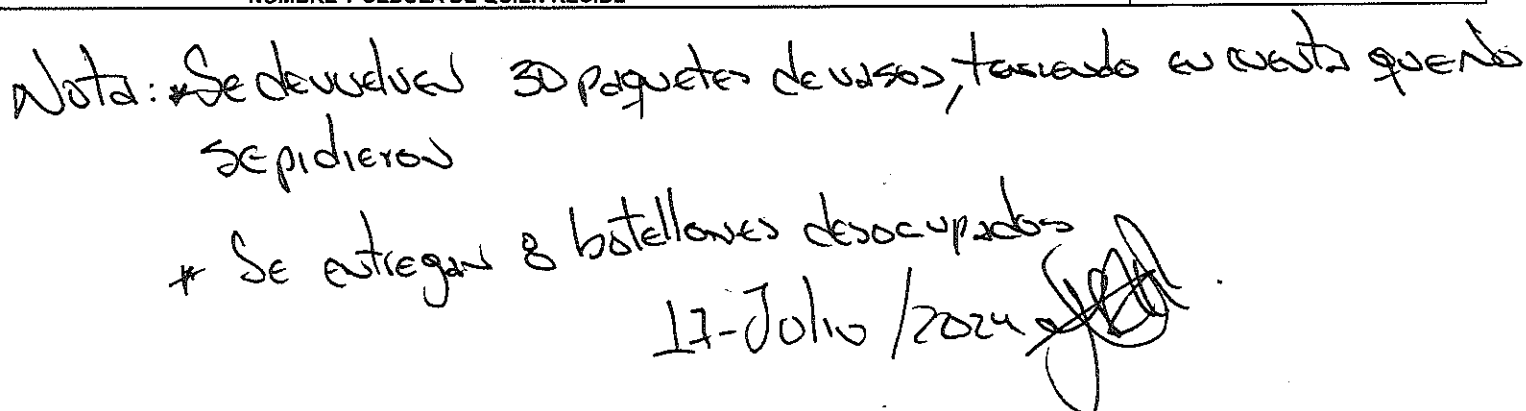 NOMBRE Y CEDULA DE QUIEN RECIBE
Nota: *Se devuelven 30 paquetes de vasos, teniendo en cuenta que no
se pidieron
* Se entregan 8 botellones desocupados
17-Julio/2024